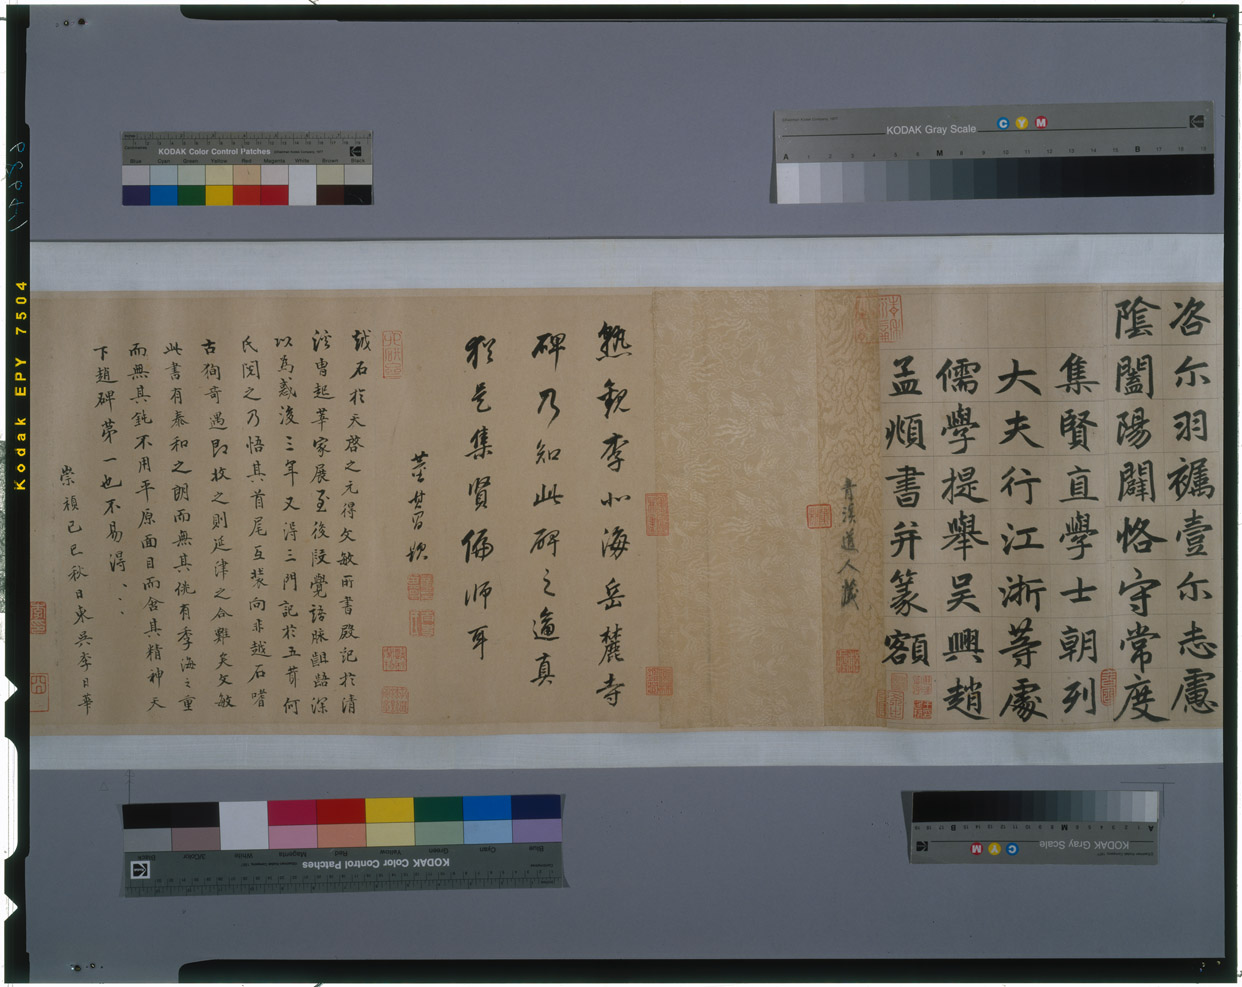 咨尔羽襹壹尔志慮
陰闔陽闢恪守常度
集賢直學士朝列
大夫行江浙等處
儒學提舉吳興趙
孟頫書并篆額
青溪道人藏
熟觀李北海岳麓寺
碑乃知此碑之逼真
猶是集賢偏師耳
董其昌題
越石於天啓之元得文敏所書殿記於清
以為憾後三年又得三門記於五茸何
氏閱之乃悟其首尾互裝向非越石嗜
古狥奇遇即收之則延津之合難矣文敏
此書有泰和之朗而無其佻有季海之重
而無其鈍不用平原面目而含其精神天
下趙碑第一也不易得、、
崇禎己巳秋日東吳李日華
KODAK Color Control Patches
Blue Cyan Green Yellow Red Magenta White Brown Black
KODAK Gray Scale
C Y M
A 1 2 3 4 5 6 M 8 9 10 11 12 13 14 15 B 17 18 19
Kodak EPY 7504
KODAK Color Control Patches
Blue Cyan Green Yellow Red Magenta White 3/Color Black
KODAK Gray Scale
C Y M